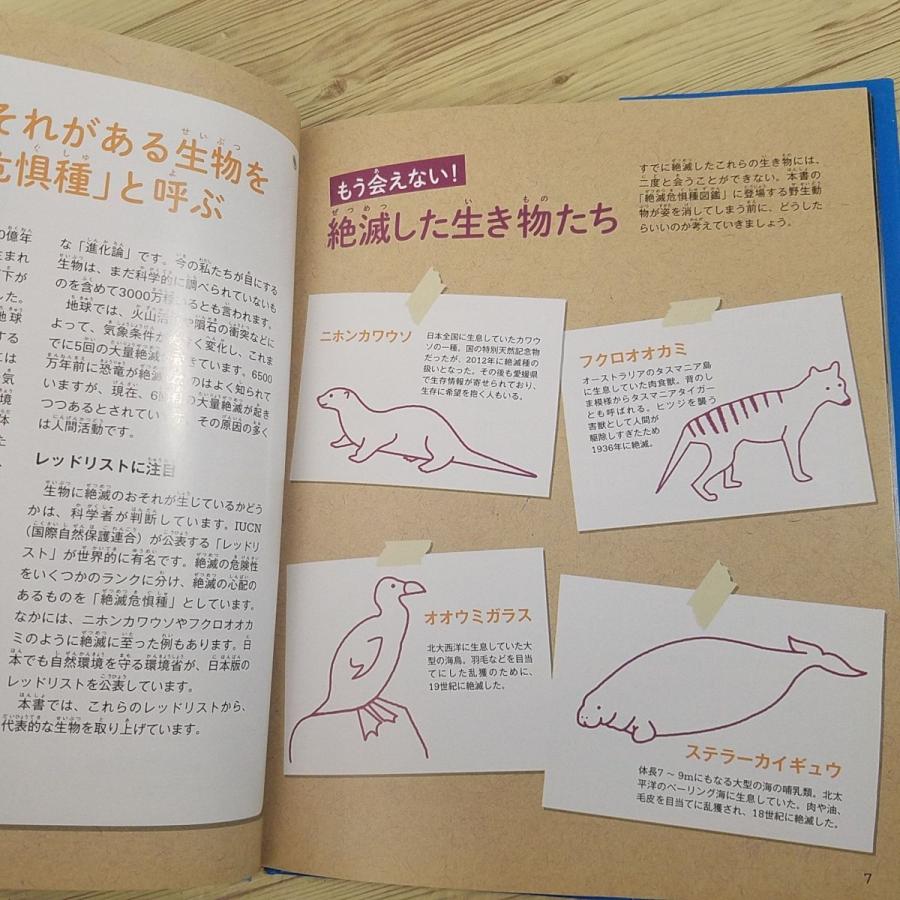 それがある生物を
危惧種」と呼ぶ
0億年
生まれ
下が
した。
地球
する
には
気
境
体
た
な「進化論」です。今の私たちが目にする
生物は、まだ科学的に調べられていないも
のを含めて3000万種いるとも言われます。
地球では、火山活 や隕石の衝突などに
よって、気象条件が きく変化し、これま
でに5回の大量絶滅 きています。6500
万年前に恐竜が絶滅 のはよく知られて
いますが、現在、6回 の大量絶滅が起き
つつあるとされてい 、その原因の多く
は人間活動です。
レッドリストに注目
生物に絶滅のおそれが生じているかどう
かは、科学者が判断しています。IUCN
(国際自然保護連合)が公表する「レッドリ
スト」が世界的に有名です。絶滅の危険性
をいくつかのランクに分け、絶滅の心配の
あるものを「絶滅危惧種」としています。
なかには、ニホンカワウソやフクロオオカ
ミのように絶滅に至った例もあります。日
本でも自然環境を守る環境省が、日本版の
レッドリストを公表しています。
本書では、これらのレッドリストから、
代表的な生物を取り上げています。
もう会えない!
絶滅した生き物たち
すでに絶滅したこれらの生き物には、
二度と会うことができない。本書の
「絶滅危惧種図鑑」に登場する野生動
物が姿を消してしまう前に、どうした
らいいのか考えていきましょう。
ニホンカワウソ
日本全国に生息していたカワウ
ソの一種。国の特別天然記念物
だったが、2012年に絶滅種の
扱いとなった。その後も愛媛県
で生存情報が寄せられており、
生存に希望を抱く人もいる。
フクロオオカミ
オーストラリアのタスマニア島
に生息していた肉食獣。背のし
ま模様からタスマニアタイガー
とも呼ばれる。ヒツジを襲う
害獣として人間が
駆除しすぎたため
1936年に絶滅。
オオウミガラス
北大西洋に生息していた大
型の海鳥。羽毛などを目当
てにした乱獲のために、
19世紀に絶滅した。
ステラーカイギュウ
体長7〜9mにもなる大型の海の哺乳類。北太
平洋のベーリング海に生息していた。肉や油、
毛皮を目当てに乱獲され、18世紀に絶滅した。
7